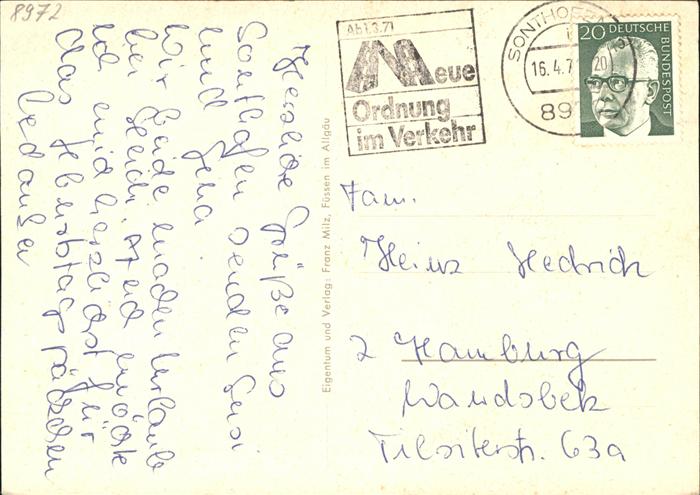 8972
Herzliche Grüße aus
Sonthofen senden Susi
und Jena
Wir beide machen Urlaub
bei Heidi. Ateid möchte
ich mich herzlichst für
das Geburtstagspäckchen
bedanken
Eigentum und Verlag: Franz Milz, Füssen im Allgäu
Ab 1.3.71
Neue
Ordnung
im Verkehr
SONTHOFEN
16.4.7
20
89
20 DEUTSCHE BUNDESPOST
Fam.
Heinz Hedrich
2 Hamburg
Wandsbek
Tilsiterstr. 63a